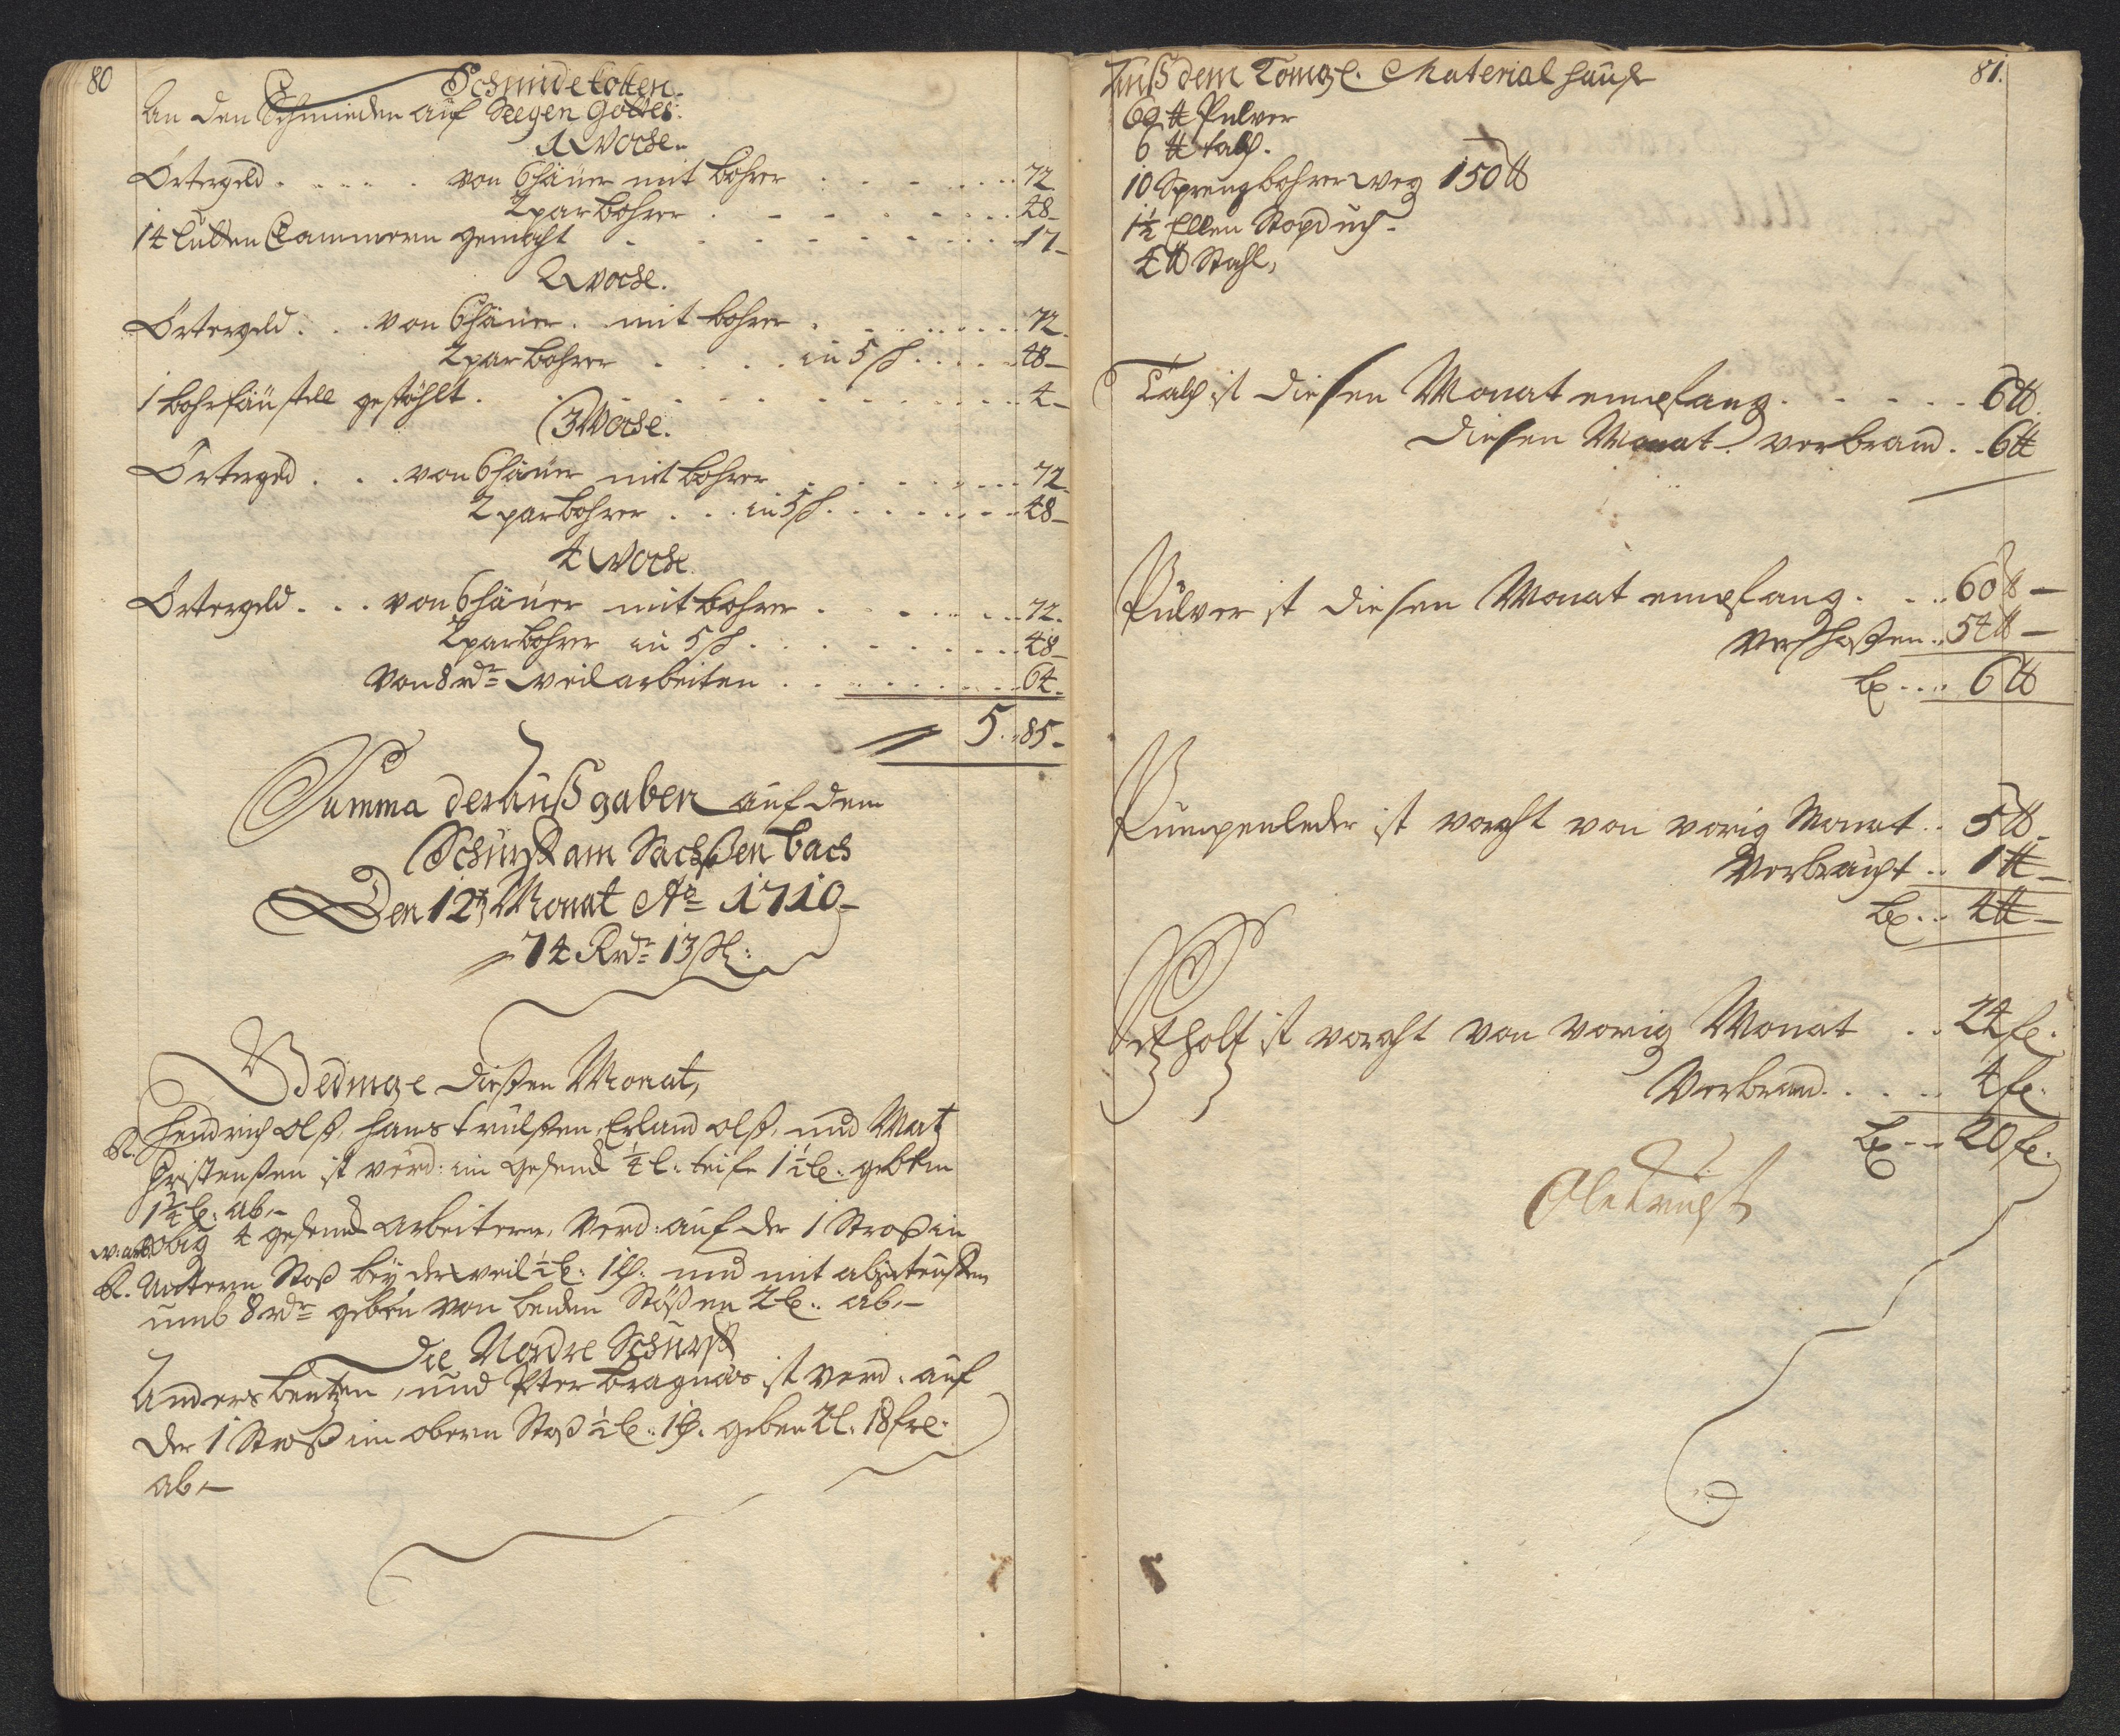 80
Schmide kosten.
An den Schmieden auf Seegen Gottes:
1 Woche.
Örtergeld . . . . . von 6 häuer mit bohrer . . . . . . . 72
2 par bohrer . . . . . . . 48
14 lutten Cammern gemacht . . . . . . . 17
2 Woche.
Örtergeld . . . von 6 häuer mit bohrer . . . . . . 72.
2 par bohrer . . . . in 5 ß . . . . 48
1 bohrfäustell gestählt . . . . . . . 4
3 Woche.
Örtergeld . . . von 6 häuer mit bohrer . . . . . . 72
2 par bohrer . . . in 5 ß . . . . . . 48
4 Woche.
Örtergeld . . . von 6 häuer mit bohrer . . . . . . 72.
2 par bohrer in 5 ß . . . . . . . 48
Von 8 rdr weilarbeiten . . . . . . 64.
5 . 85
Summa der Außgaben auf dem
Schurff am Sachßen bach
Den 12t Monat Ao 1710
74 Rdr 13 ß:
Bedinge dießen Monat,
R. Hendrich Olß, Hans Trulßen, Erland Olß, und Mat
Christenßen ist verd: im Gesenck ¼ l. teife 1½ l. geben
1¾ l. ab
obig 4 gesenck arbeitern, Verd: auf der 1 Stroß in
R. Untern Stoß bey der weil ½ l. 1 ß. und mit abzuteuffen
umb 8 rdr geben von beiden Stößen 2 l. ab
Die Nordre Schurff
Anders bentzen, und Peter Bragnäs ist verd. auf
der 1 Stroß im obern Stoß ½ l. 1 ß. geben 2 l. 18
ab
81.
Auß dem Comgl. Material hauß
60 ℔ Pulver
6 ℔ talch.
10 Sprengbohrer weg 150 ℔
1½ Ellen Stopduch.
4 ℔ Stahl,
Talch ist diesen Monat empfang . . . . . . 6 ℔.
diesen Monat verbrand . . 6 ℔
Pulver ist diesen Monat empfang . . . 60 ℔
Verschoßen . . 54 ℔
. . . 6 ℔
Pumpenleder ist vorraht von vorig Monat . . 5 ℔
Verbraucht . . 1 ℔
. . 4 ℔
Setzholtz ist vorraht von vorig Monat . . 24
Verbrand . . . . 4
. . 20